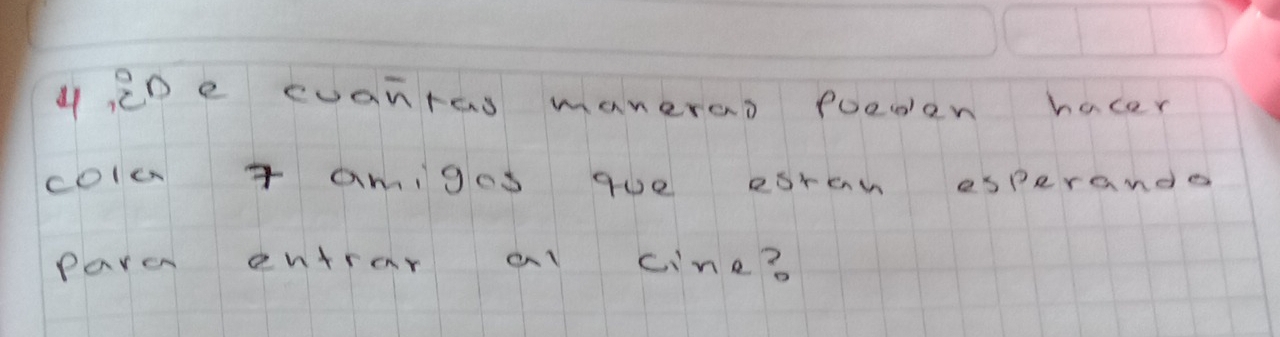 4 ¿De cuantas maneras pueden hacer
cola 7 amigos que estan esperando
para entrar al cine?